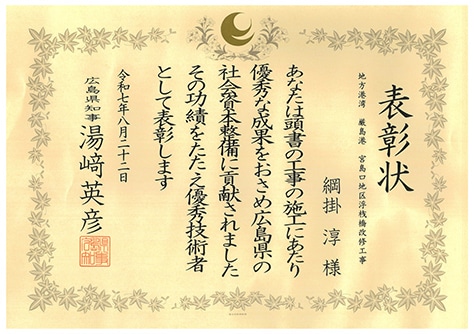 表彰状
地方港湾 厳島港 宮島口地区浮桟橋改修工事
綱掛 淳 様
あなたは頭書の工事の施工にあたり
優秀な成果をおさめ広島県の
社会資本整備に貢献されました
その功績をたたえ優秀技術者
として表彰します
令和七年八月二十二日
広島県知事 湯﨑英彦